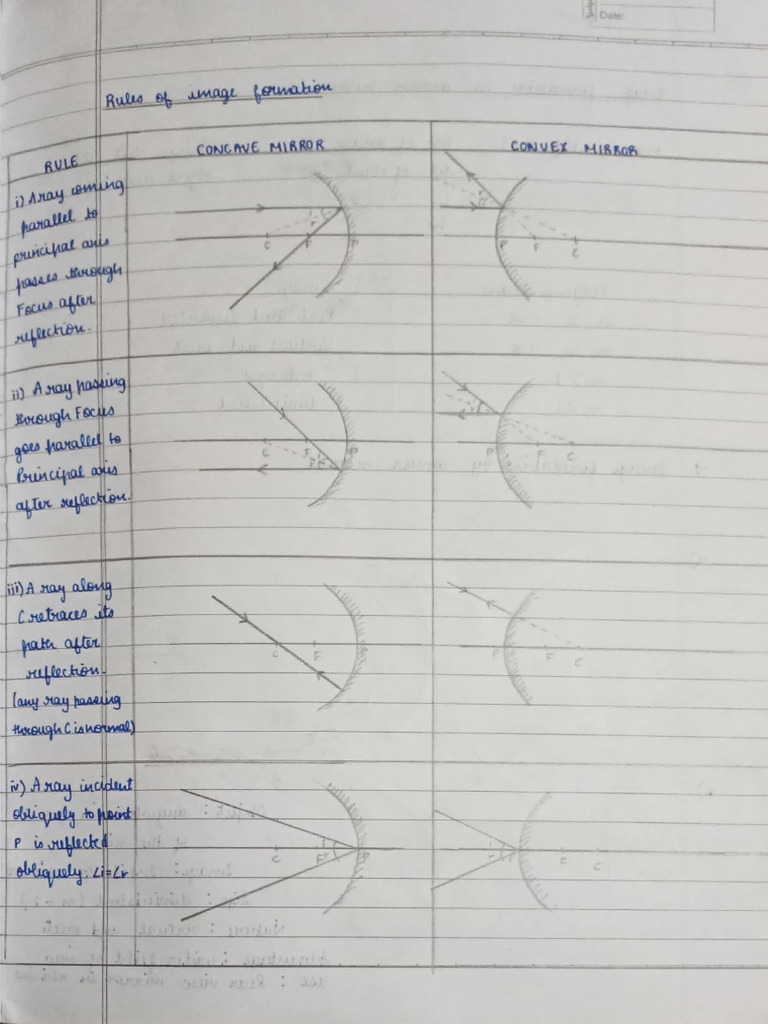 Date:
Rules of image formation
RULE
CONCAVE MIRROR
CONVEX MIRROR
i) A ray coming
parallel to
principal axis
passes through
Focus after
reflection.
i
r
C
F
P
i
r
P
F
C
ii) A ray passing
through Focus
goes parallel to
Principal axis
after reflection.
C
F
P
i
r
P
F
C
iii) A ray along
C retraces its
path after
reflection.
(any ray passing
through C is normal)
C
F
P
F
C
iv) A ray incident
obliquely to point
P is reflected
obliquely. ∠i=∠r
C
F
P
i
r
F
C